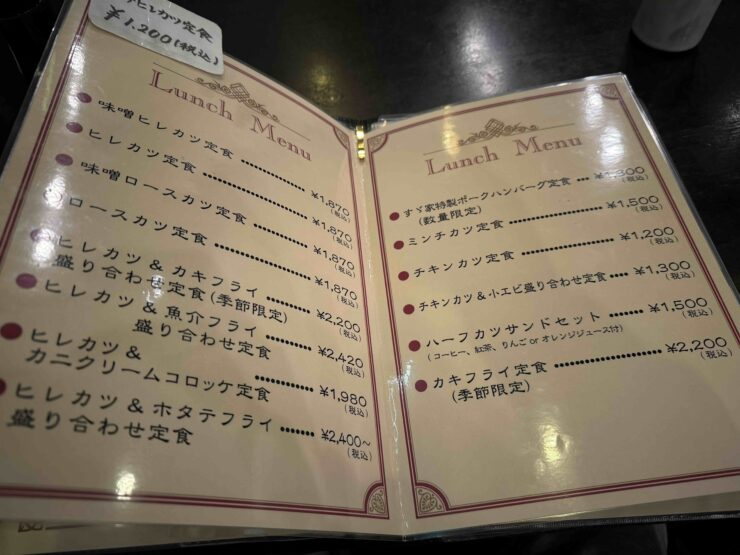 ヒレカツ定食
¥1,200(税込)
Lunch Menu
味噌ヒレカツ定食 ¥1,870
(税込)
ヒレカツ定食 ¥1,870
(税込)
味噌ロースカツ定食 ¥1,870
(税込)
ロースカツ定食 ¥1,870
(税込)
ヒレカツ & カキフライ
盛り合わせ定食(季節限定) ¥2,200
(税込)
ヒレカツ & 魚介フライ
盛り合わせ定食 ¥2,420
(税込)
ヒレカツ &
カニクリームコロッケ定食 ¥1,980
(税込)
ヒレカツ & ホタテフライ
盛り合わせ定食 ¥2,400~
(税込)
Lunch Menu
すゞ家特製ポークハンバーグ定食
(税込)
(数量限定)
ミンチカツ定食 ¥1,500
(税込)
チキンカツ定食 ¥1,200
(税込)
チキンカツ&小エビ盛り合わせ定食 ¥1,300
(税込)
ハーフカツサンドセット ¥1,500
(税込)
(コーヒー、紅茶、りんご or オレンジジュース付)
カキフライ定食 ¥2,200
(税込)
(季節限定)